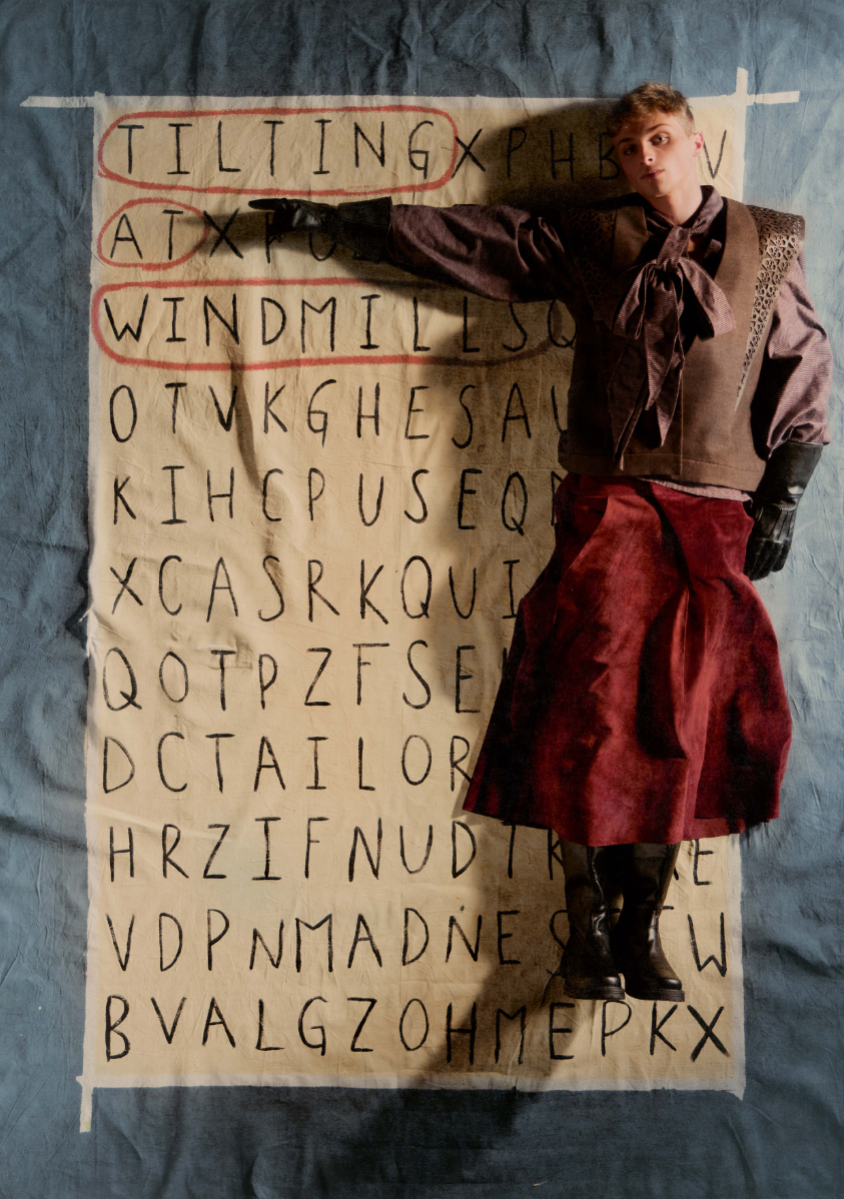 TILTINGXPHB V
ATX
WINDMILLSQ
OTVKGHESAU
KIHCPUSEQ
XCASRKQUI
QOTPZFSE
DCTAILOR
HRZIFNUD E
VDPNMADNES W
BVALGZOHMEPKX